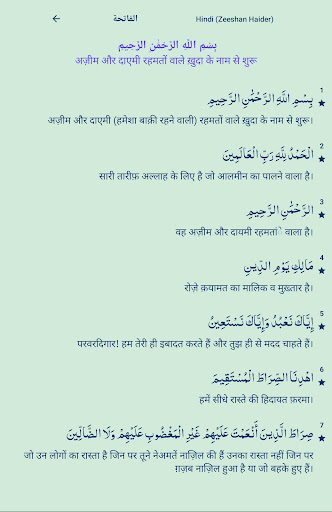 ← الفاتحة Hindi (Zeeshan Haider)
بِسْمِ اللَّهِ الرَّحْمَٰنِ الرَّحِيمِ
अज़ीम और दाएमी रहमतों वाले ख़ुदा के नाम से शुरू
1
بِسْمِ اللَّهِ الرَّحْمَٰنِ الرَّحِيمِ ★
अज़ीम और दाएमी (हमेशा बाक़ी रहने वाली) रहमतों वाले ख़ुदा के नाम से शुरू।
2
الْحَمْدُ لِلَّهِ رَبِّ الْعَالَمِينَ ★
सारी तारीफ़ अल्लाह के लिए है जो आलमीन का पालने वाला है।
3
الرَّحْمَٰنِ الرَّحِيمِ ★
वह अज़ीम और दायमी रहमतों वाला है।
4
مَالِكِ يَوْمِ الدِّينِ ★
रोज़े क़यामत का मालिक व मुख़्तार है।
5
إِيَّاكَ نَعْبُدُ وَإِيَّاكَ نَسْتَعِينُ ★
परवरदिगार! हम तेरी ही इबादत करते हैं और तुझ ही से मदद चाहते हैं।
6
اهْدِنَا الصِّرَاطَ الْمُسْتَقِيمَ ★
हमें सीधे रास्ते की हिदायत फ़रमा।
7
صِرَاطَ الَّذِينَ أَنْعَمْتَ عَلَيْهِمْ غَيْرِ الْمَغْضُوبِ عَلَيْهِمْ وَلَا الضَّالِّينَ ★
जो उन लोगों का रास्ता है जिन पर तूने नेअमतें नाज़िल की हैं उनका रास्ता नहीं जिन पर
ग़ज़ब नाज़िल हुआ है या जो बहके हुए हैं।